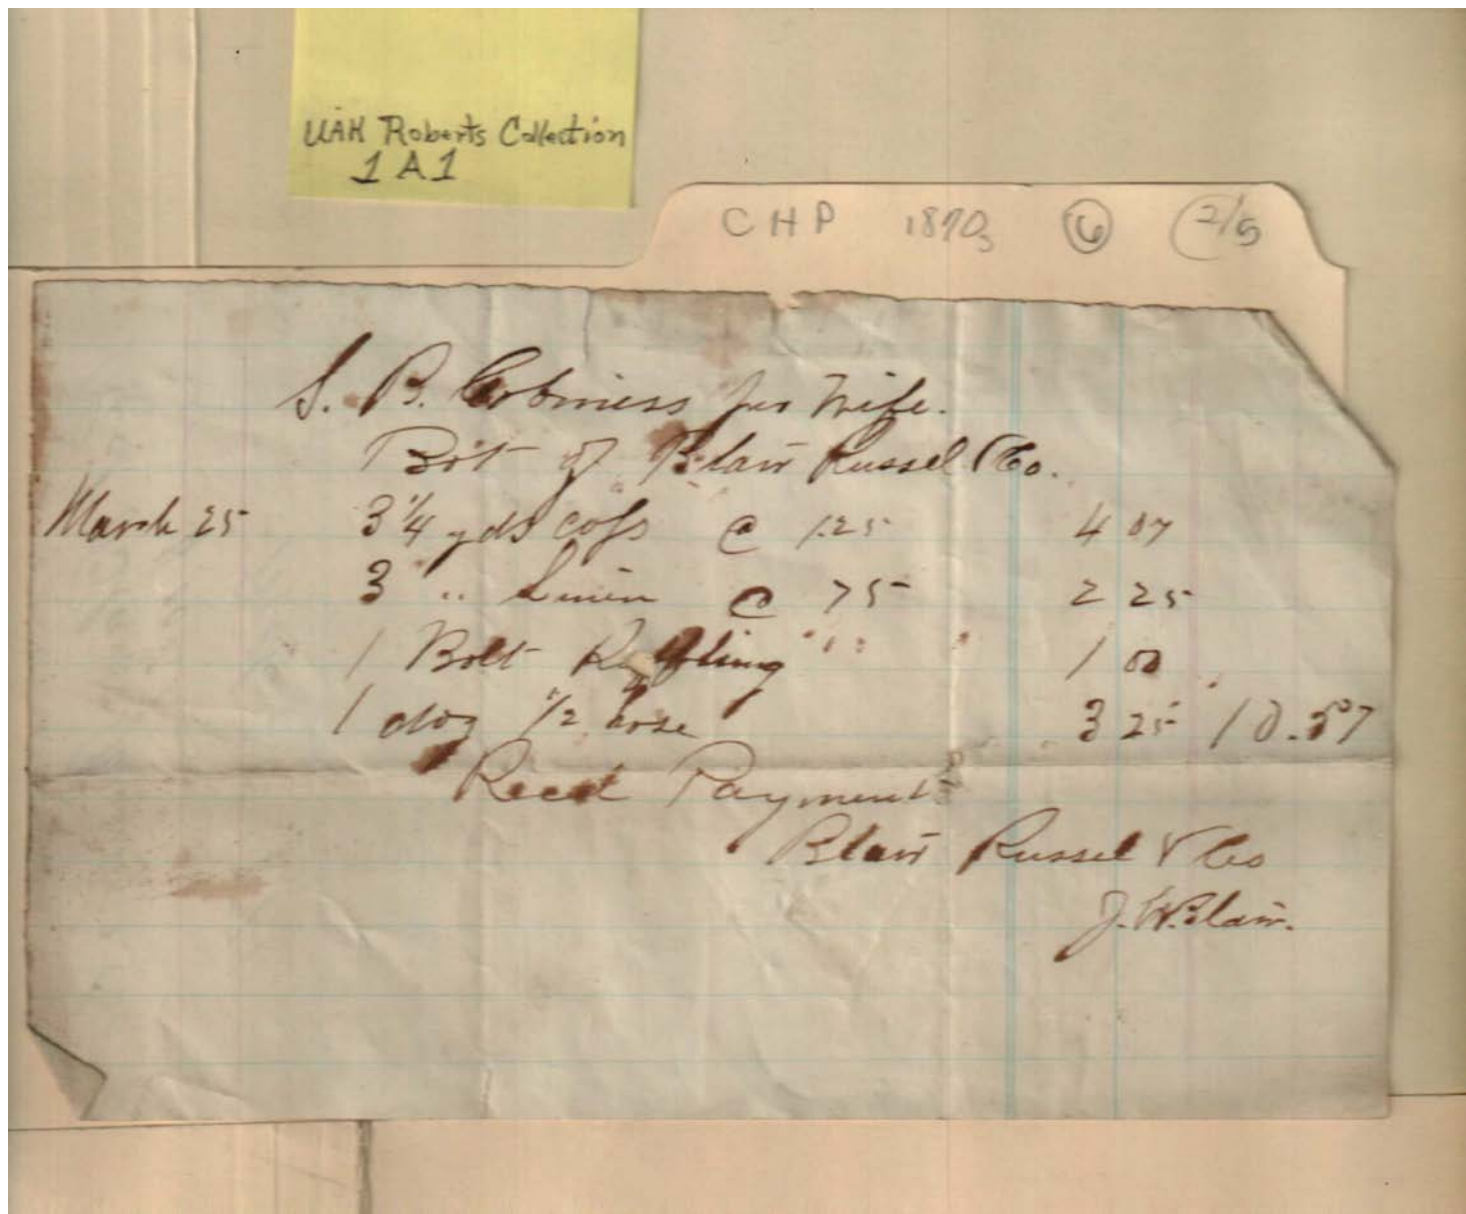 UAH Roberts Collection
1 A 1
CHP 1870s 6 (2/5
S. B. Cabiness for Wife.
Bot of Blair Russel & Co.
March 25 3 1/4 yds @ 1.25 4 07
3 " Linen @ 75 2 25
1 Bolt Ruffling " " 1 00
1 doz 1/2 hose 3 25 10.57
Recd Payment
Blair Russel & Co
J. W. Blair.